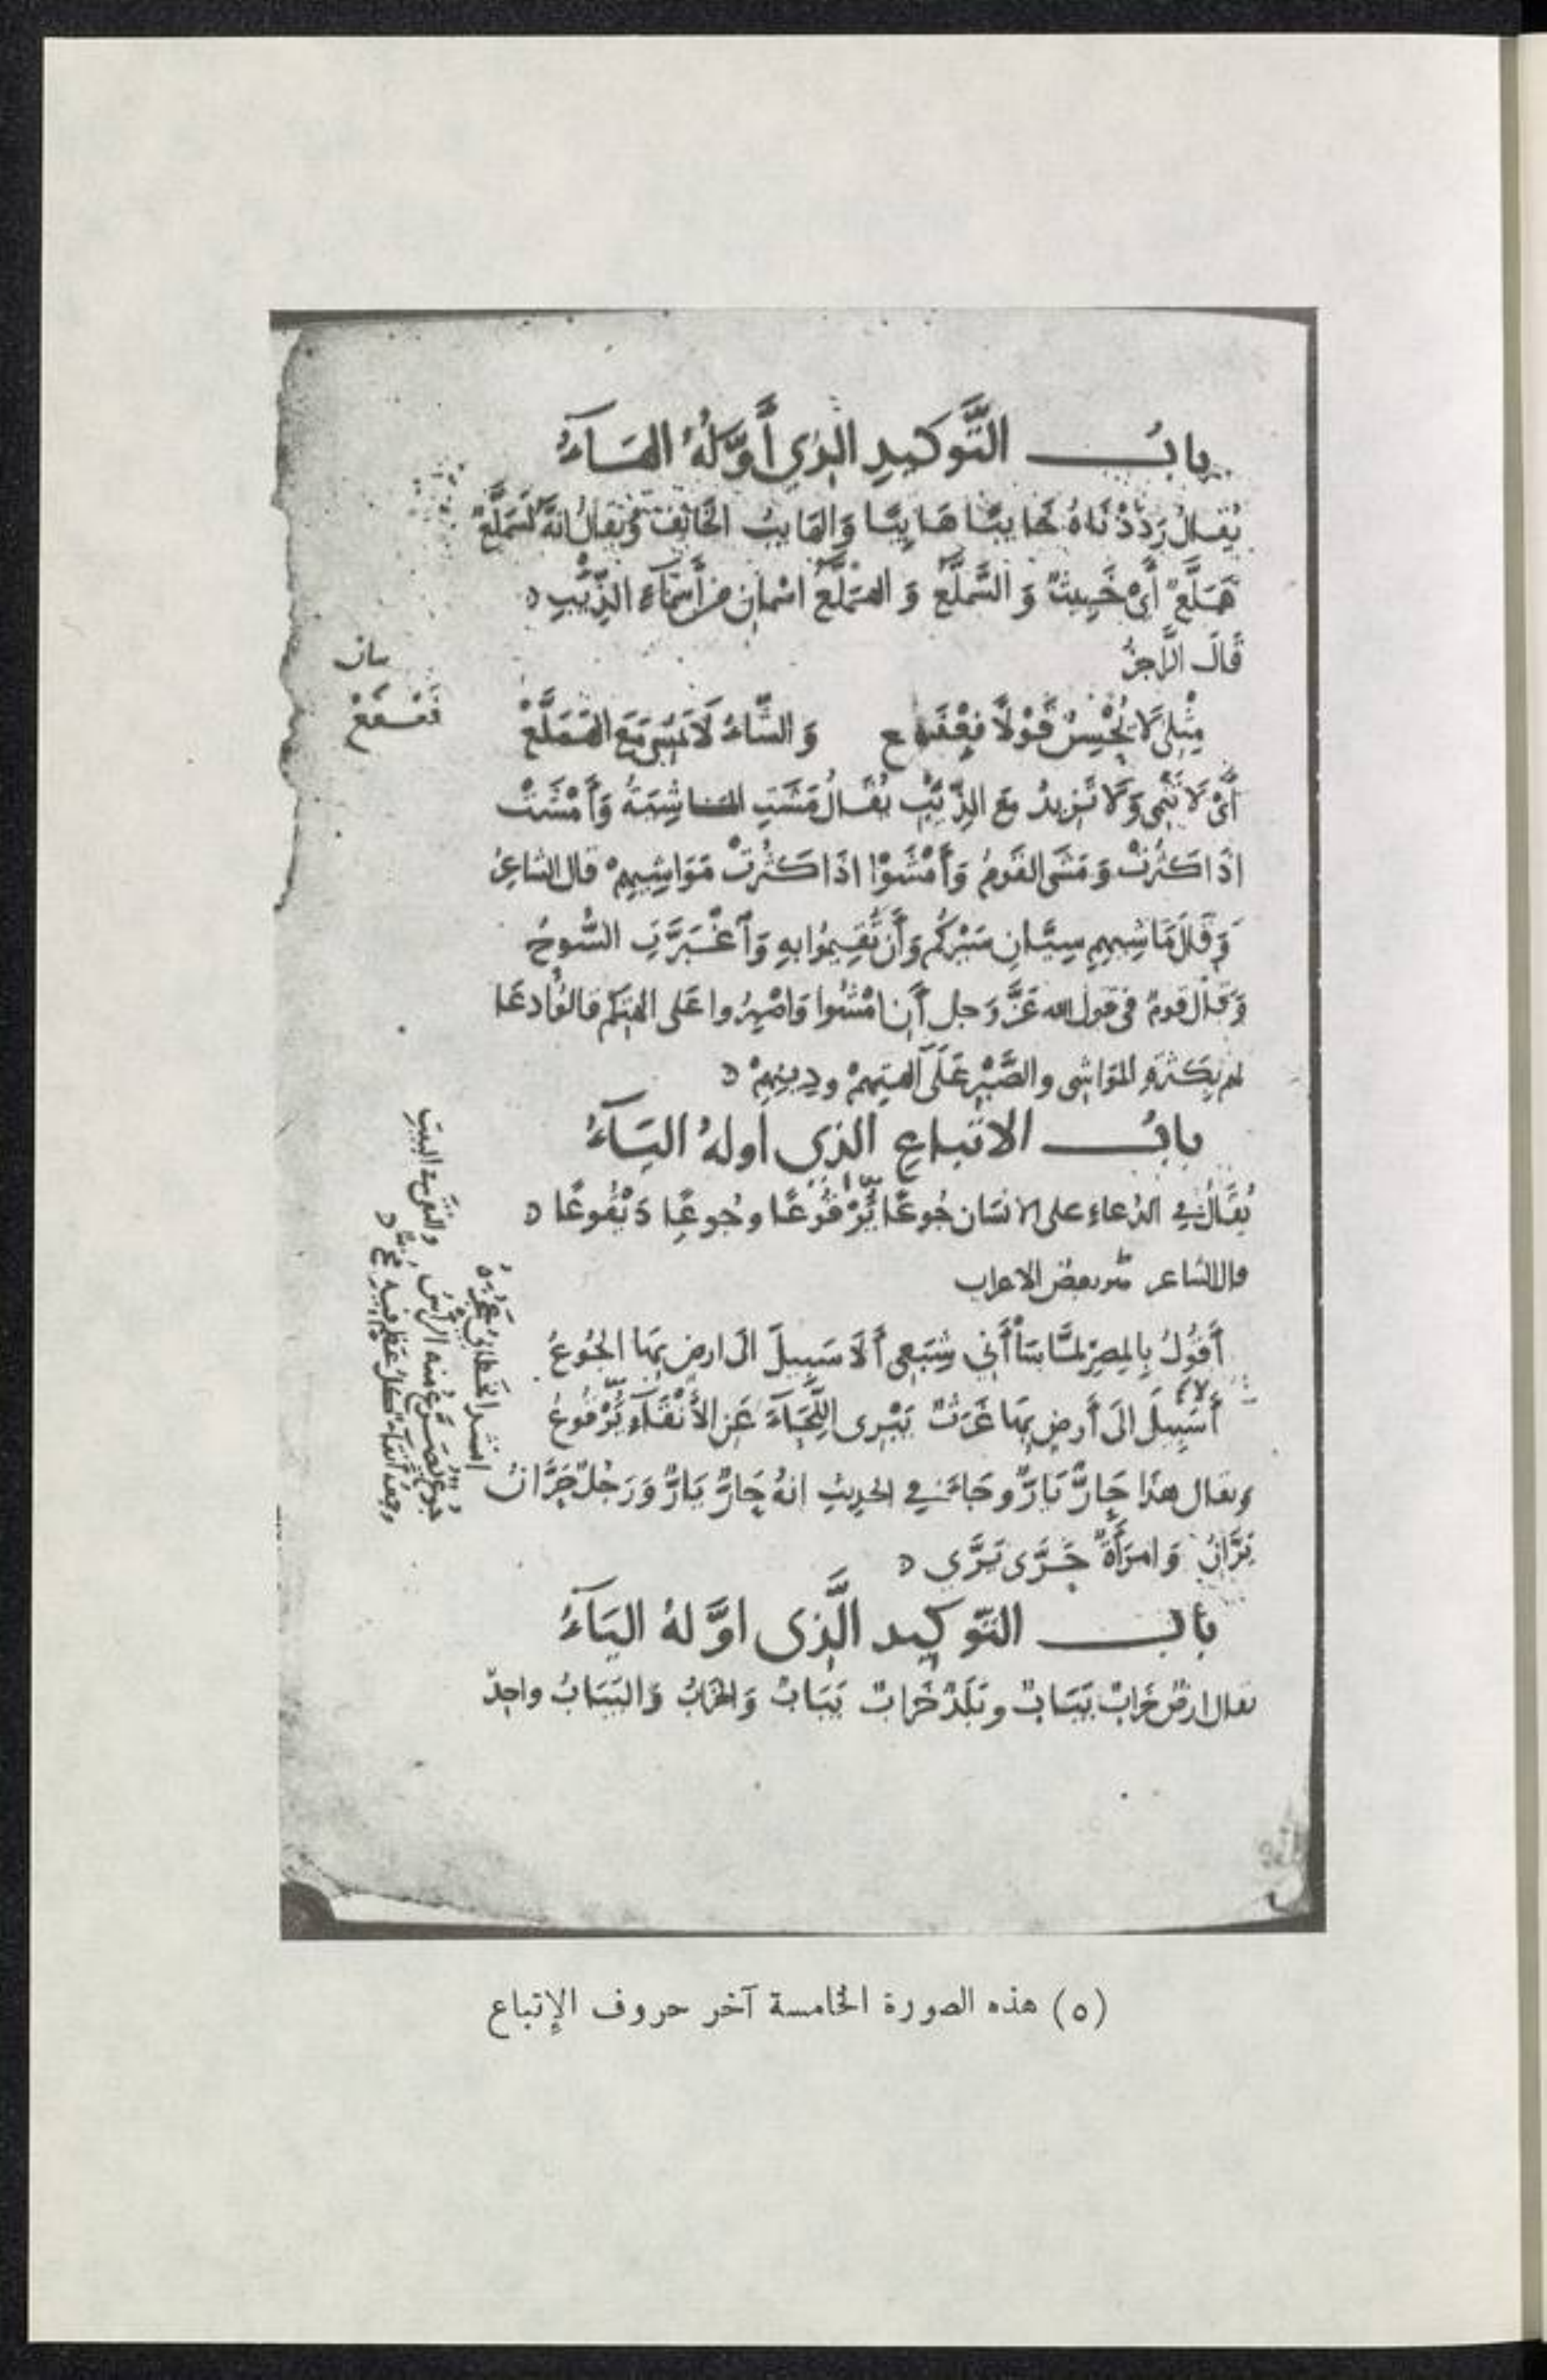 باب التَّوكيدِ الذي أوَّلهُ الهاءُ
يُقالُ رَدَدْناهُ خايبًا هايبًا وَالهايبُ الخائفُ ويقالُ انّهُ لسَمَلَّعٌ
هَمَلَّعٌ أيْ خَبِيثٌ وَ السَّمَلَّعُ وَ الهمَلَّعُ اسْمانِ من أَسْمَاءِ الذِّئْبِ
قَالَ الرَّاجزُ
مِثْلِى لَا يُحْسِنُ قَوْلًا فَعْفَع وَ الشَّاءُ لَا تَمْشِى مَعَ الهَمَلَّعْ
أَىْ لَا تَنْمِى وَلَا تَزيدُ مع الذِّئْبِ يُقالُ مَشَتِ الماشِيَةُ وَأَمْشَتْ
اذَا كَثُرَتْ وَمَشَى القَومُ وَأَمْشَوْا اذَا كَثُرَتْ مَوَاشِيهِمْ قال الشاعرُ
وَقَالَ مَاشِيهِمِ سِيَّانِ سَيْرُكُمُ وَأَن تُقِيمُوا بهِ وَاَغْبَرَّتِ السُّوحُ
وَقَالَ قومٌ فى قول الله عَزَّ وَجل أَنِ امْشُوا وَاصْبِرُوا عَلى الهتكم قالوُا دعَا
لهم بِكَثرَةِ المَوَاشِى والصَّبْرِ عَلَى آلهتِهِمْ ودِينِهِمْ
بابُ الاتباعِ الذي أولهُ الياءُ
يُقَالُ في الدُعاءِ على الانسَان جُوعًا يُرْقُوعًا وجُوعًا دَيْقُوعًا
قال الشاعر من بعض الاعراب
أَقُولُ بِالمِصرِ لمَّا سَاْأَنِي شِبَعِى أَلَا سَبِيلَ الى ارضٍ بهَا الجُوعُ
أَلا سَبِيلَ الَى أَرضٍ بهَا غَرَثٌ يَبْرِى اللِّحَاءَ عَنِ الأَنْقَاءِ يُرْقُوعُ
ويقال هذَا حَارٌّ يَارٌّ وجَاءَ في الحدِيثِ انهُ حَارٌّ يَارٌّ وَرَجُلٌ حَرَّانُ
يَرَّانُ وَامرَأَةٌ حَرَّى يَرَّى
باب التوكيد الَّذى اوَّلهُ اليَاءُ
يقال ارضٌ خرابٌ يَبَابٌ وبَلَدٌ خَرَابٌ يَبَابٌ وَالخرَابُ وَاليَبَابُ واحِدٌ
(٥) هذه الصورة الخامسة آخر حروف الإتباع